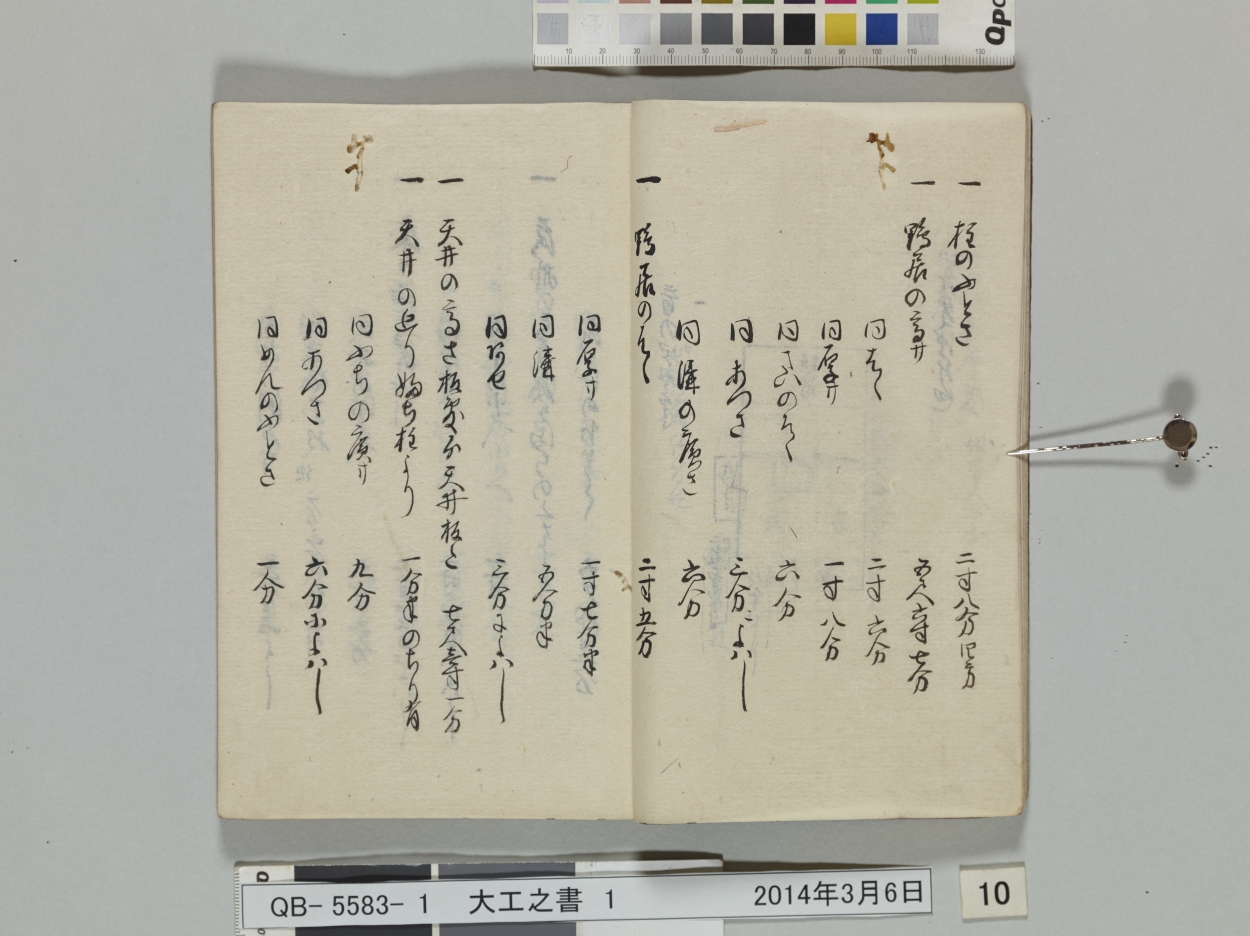 一 柱のふとさ 二寸八分四方
一 鴨居の高サ 五尺壱寸七分
同 はゝ 二寸六分
同 厚サ 一寸八分
同 のはゝ 六分
同 あつさ 三分によハし
同 溝の廣さ 六分
一 鴨居のはゝ 二寸五分
同 厚サ 一寸七分半
同 溝 五分半
同 あせ 三分によハし
一 天井の高さ板敷より天井板迄 七尺壱寸一分
一 天井の廻りふち柱より 一分半のちり有
同 ふちの廣サ 九分
同 あつさ 六分によハし
同 めんのふとさ 一分
QB-5583-1 大工之書 1 2014年3月6日
10
10 20 30 40 50 60 70 80 90 100 110 130